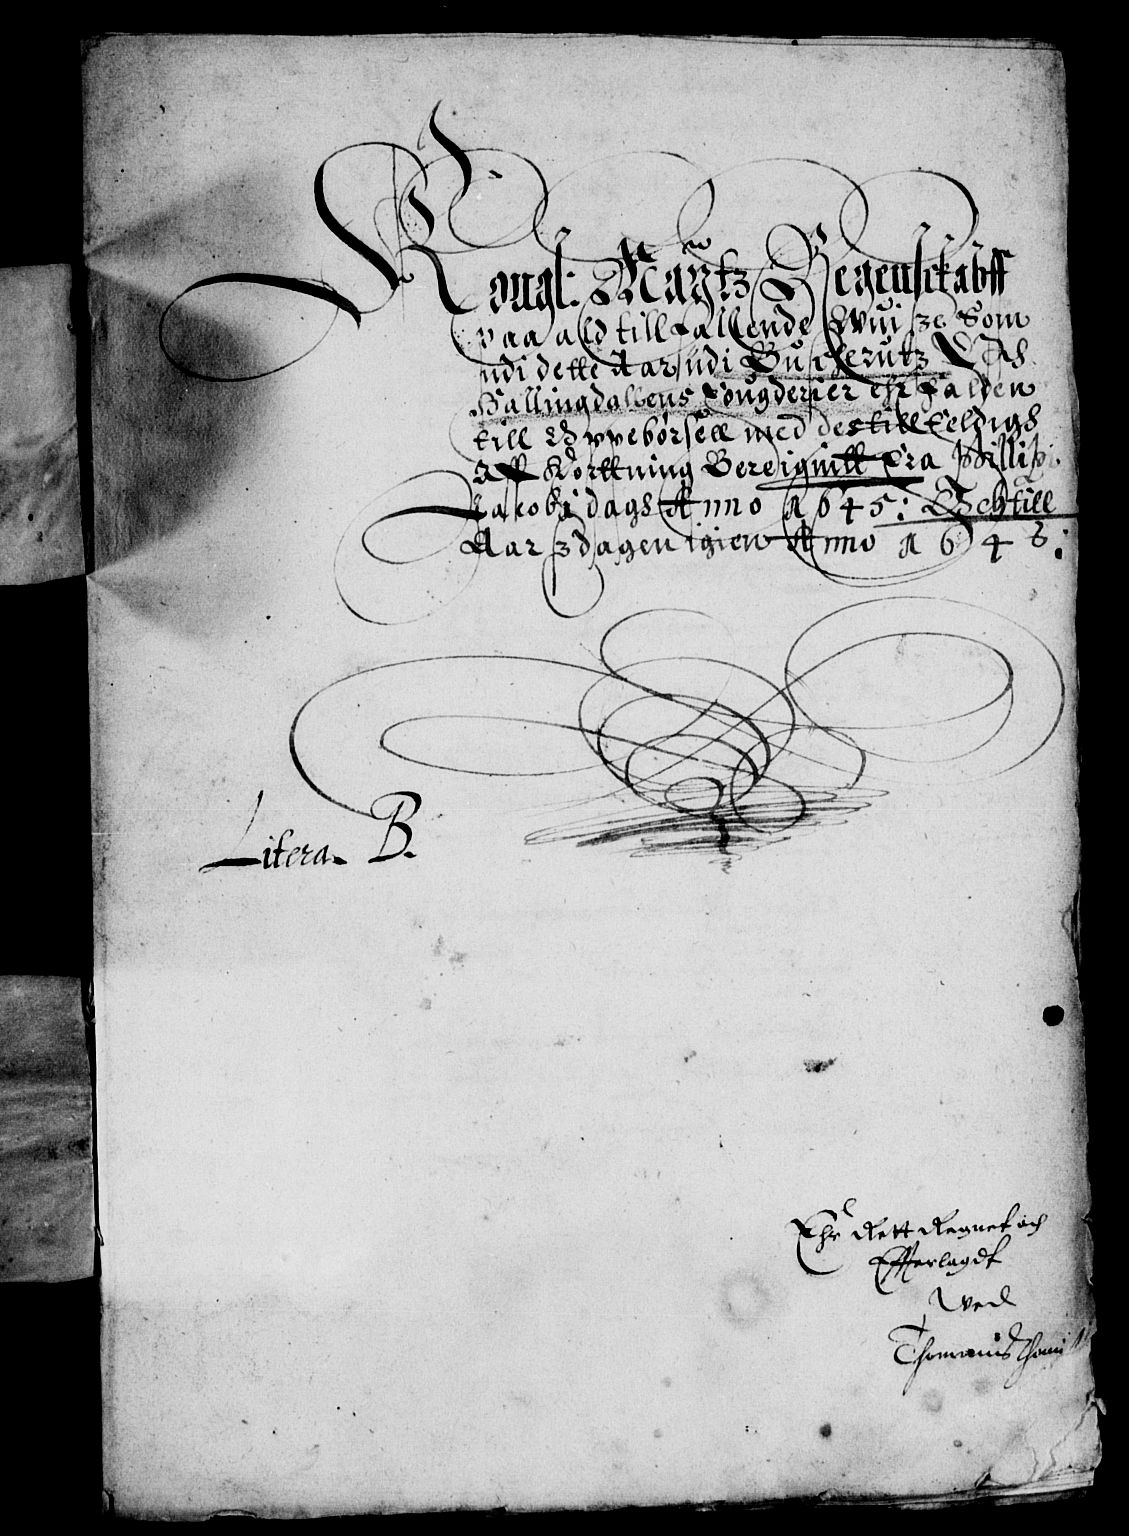 Kongl: Maÿtz Regenskabff
paa ald tillfallende Wuisze Som
udi dette Aar udi Buscherutz Och
Hallingdallens Fougderier ehr falden
till Oppebørsell med des tillfeldigs
Aff Kortning Beregnitt Fra Phillipi
Jacobi dags Anno 1645: Och till
Aarszdagen igien Anno 1646:
Litera. B.
Ehr Rett Regnet och
Efferlagdt
Wed
Thomas